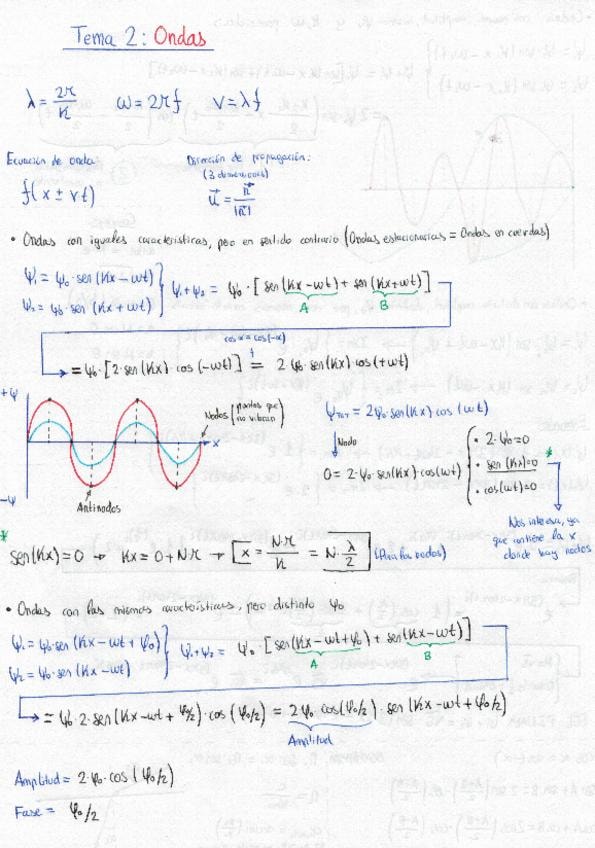 Tema 2: Ondas
λ = 2π/K   ω = 2πf   v = λf
Ecuación de onda:   Dirección de propagación:
(3 dimensiones)
f(x ± vt)   u⃗ = K⃗/|K⃗|
• Ondas con iguales características, pero en sentido contrario (Ondas estacionarias = Ondas en cuerdas)
Ψ₁ = Ψ₀·sen(Kx - ωt)
Ψ₂ = Ψ₀·sen(Kx + ωt)
Ψ₁+Ψ₂ = Ψ₀·[sen(Kx-ωt) + sen(Kx+ωt)]
A   B
cos α = cos(-α)
= Ψ₀·[2·sen(Kx)·cos(-ωt)] = 2·Ψ₀·sen(Kx)·cos(+ωt)
+Ψ
Nodos (puntos que no vibran)
x
-Ψ
Antinodos
Ψ = 2Ψ₀·sen(Kx)·cos(ωt)
Nodo
0 = 2·Ψ₀·sen(Kx)·cos(ωt)
• 2·Ψ₀=0
• sen(Kx)=0 *
• cos(ωt)=0
Nos interesa, ya
que contiene la x
donde hay nodos
*
sen(Kx) = 0 → Kx = 0 + N·π → x = N·π/K = N·λ/2 (Para los nodos)
• Ondas con las mismas características, pero distinto φ₀
Ψ₁ = Ψ₀·sen(Kx - ωt + φ₀)
Ψ₂ = Ψ₀·sen(Kx - ωt)
Ψ₁+Ψ₂ = Ψ₀·[sen(Kx-ωt+φ₀) + sen(Kx-ωt)]
A   B
= Ψ₀·2·sen(Kx-ωt + φ₀/2)·cos(φ₀/2) = 2Ψ₀·cos(φ₀/2)·sen(Kx-ωt+φ₀/2)
Amplitud
Amplitud = 2·Ψ₀·cos(φ₀/2)
Fase = φ₀/2